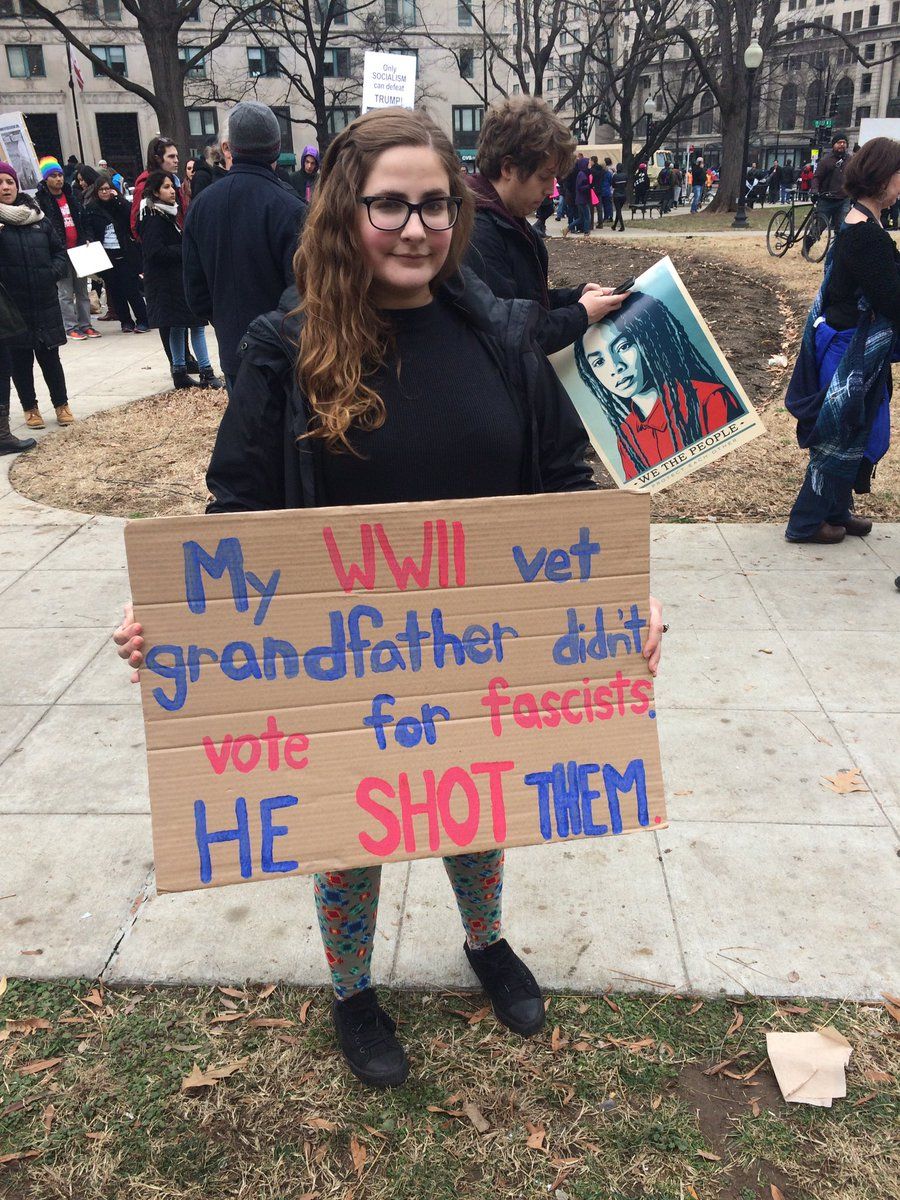 Only
SOCIALISM
can defeat
TRUMP!
- WE THE PEOPLE -
PROTECT EACH OTHER
My WWII vet
grandfather didn't
vote for fascists.
HE SHOT THEM.
CVS